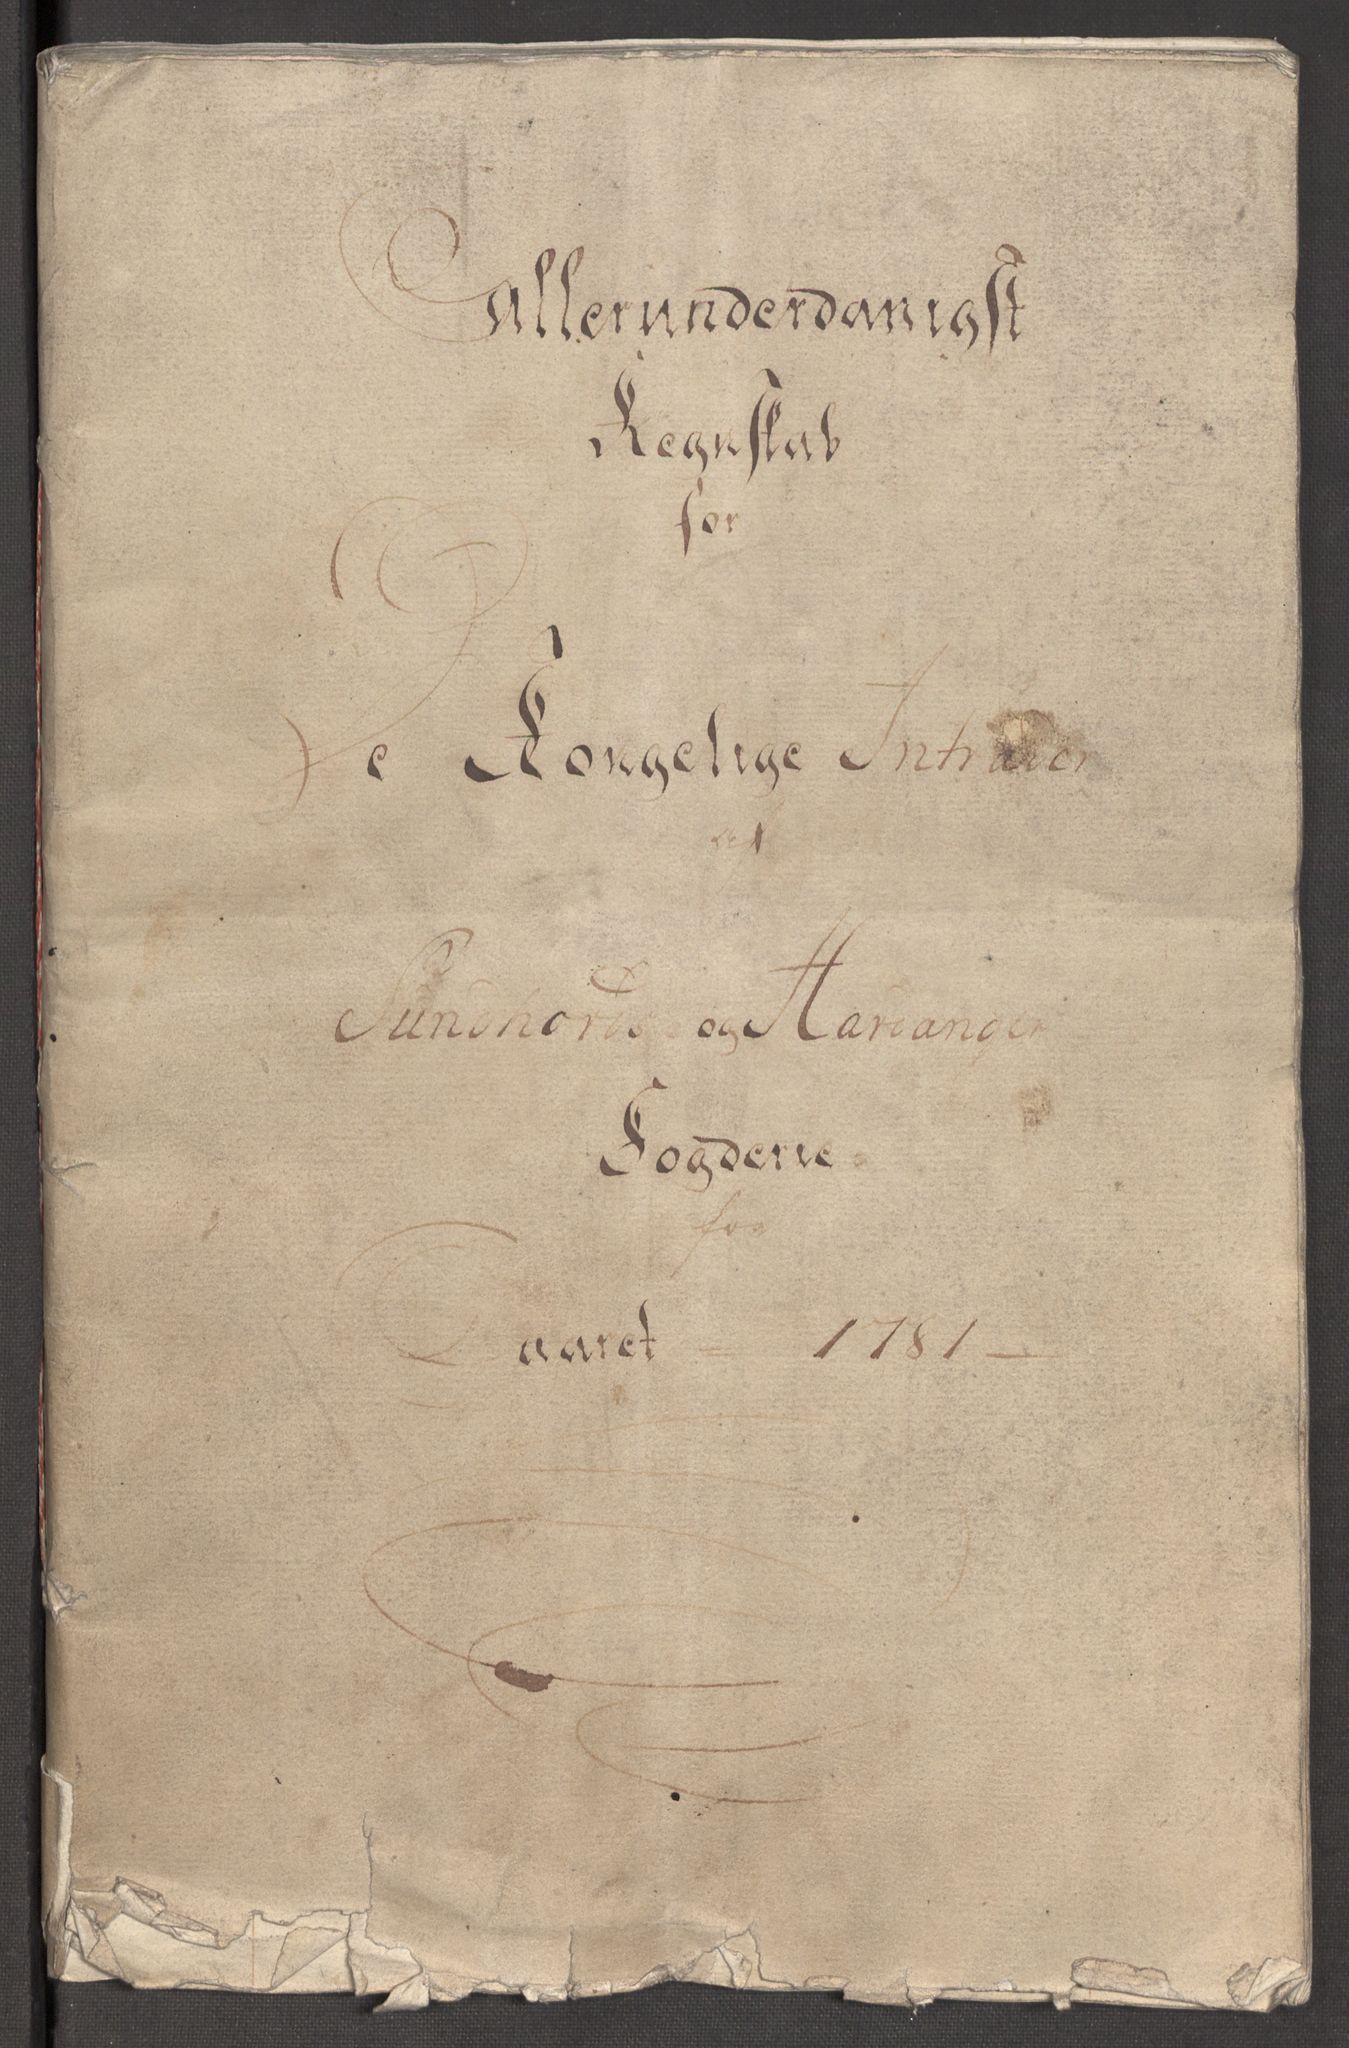 Allerunderdanigst
Regnskab
for
De Kongelige Intrader
af
Sundhords og Hardanger
Fogderie
for
Aaret 1781